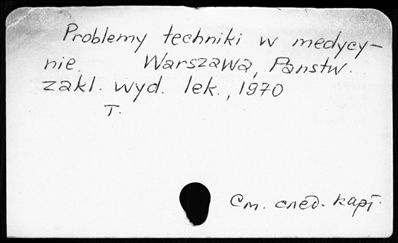 Problemy techniki w medycy-
nie. Warszawa, Państw.
zakl. wyd. lek., 1970
T.
См. след. карт.